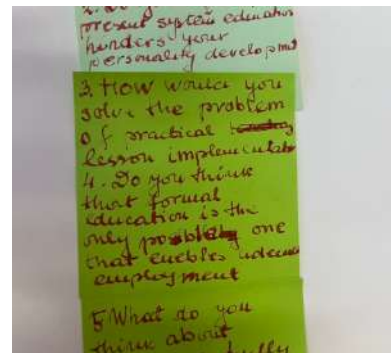 present system education
hinders your
personality developmnt
3. How would you
solve the problem
of practical
lesson implementati
4. Do you think
that formal
education is the
only one
that enebles
employment
5 What do you
think about
fully